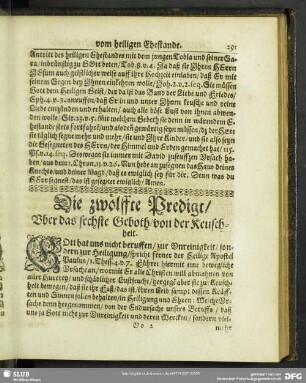 vom heiligen Ehestande. 291
Antritt des heiligen Ehestandes mit dem jungen Tobia und seiner Sa-
ra/ inbrünstig zu GOtt beten/ Tob. 8. v. 4. Ja daß sie Ihren HErrn
JEsum auch geistlicher weise auff ihre Hochzeit einladen/ daß Er mit
seinem Segen bey Ihnen einkehren wolle/ Joh. 2. v. 2. seq. Sie müssen
Gott dem Heiligen Geist/ der da ist das Band der Liebe und Friedes/
Eph. 4. v. 3. anruffen/ daß Er in und unter Ihnen keusche und reine
Liebe entzünden und erhalten/ auch alle böse Lust von ihnen abwen-
den wolle/
Ehestande stets fortfahren/ und also deß
sie täglich segne mehr und mehr/ sie und Ihre Kinder/ und sie also seyn
die Gesegneten des HErrn/ der Himmel und Erden gemachet hat/ 115.
Ps. v. 14. seq. Deswegen sie immer mit David zuseuffzen Ursach ha-
ben/ aus dem 1. Chron. 17. v. 26. Nun hebe an zusegnen das Haus deines
Knechts und deiner Magd/ daß es ewiglich sey für dir. Denn was du
HErr segnest/ das ist gesegnet ewiglich/ Amen.
Die zwölffte Predigt/
Vber das sechste Geboth/ von der Keusch-
heit.
GOtt hat uns nicht beruffen/ zur Unreinigkeit/ son-
dern zur Heiligung/ spricht ferner der Heilige Apostel
Paulus/ 1. Thess. 4. v. 7. Führet hiermit eine bewegliche
Ursache an/ wormit Er alle Christen will abmahnen von
aller Hurerey/ und schädlicher Lustseuche/ hergegen aber sie zu Keusch-
heit bewegen/ daß sie ihr Faß/ das ist/ Ihren Leib sampt dessen Kräff-
ten und Sinnen sollen behalten/ in Heiligung und Ehren: Welche Ur-
sache denn hergenommen/ von der Endursache unsers Beruffs/ daß
uns ja Gott nicht zur Unreinigkeit und deren Wercken/ sondern viel-
Oo 2 mehr
SLUB
DFG